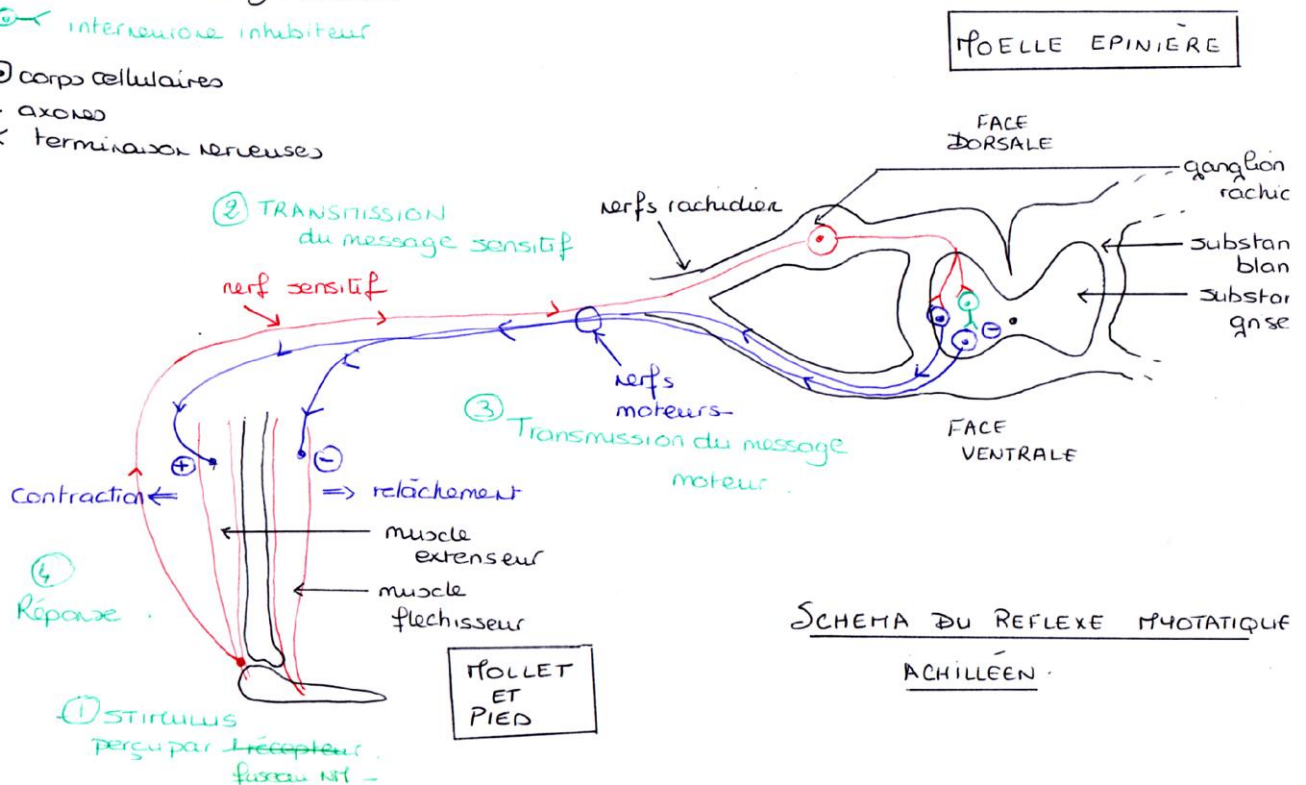 interneurone inhibiteur
corps cellulaires
axones
terminaison nerveuses
MOELLE EPINIÈRE
FACE
DORSALE
ganglion
rachic
substan
blan
substan
grise
nerfs rachidien
② TRANSMISSION
du message sensitif
nerf sensitif
nerfs
moteurs
③ Transmission du message
moteur.
FACE
VENTRALE
+
-
-
contraction <=
=> relâchement
muscle
extenseur
muscle
flechisseur
④
Réponse.
MOLLET
ET
PIED
① STIMULUS
perçu par récepteur.
fuseau NM -
SCHEMA DU REFLEXE MYOTATIQUE
ACHILLÉEN.